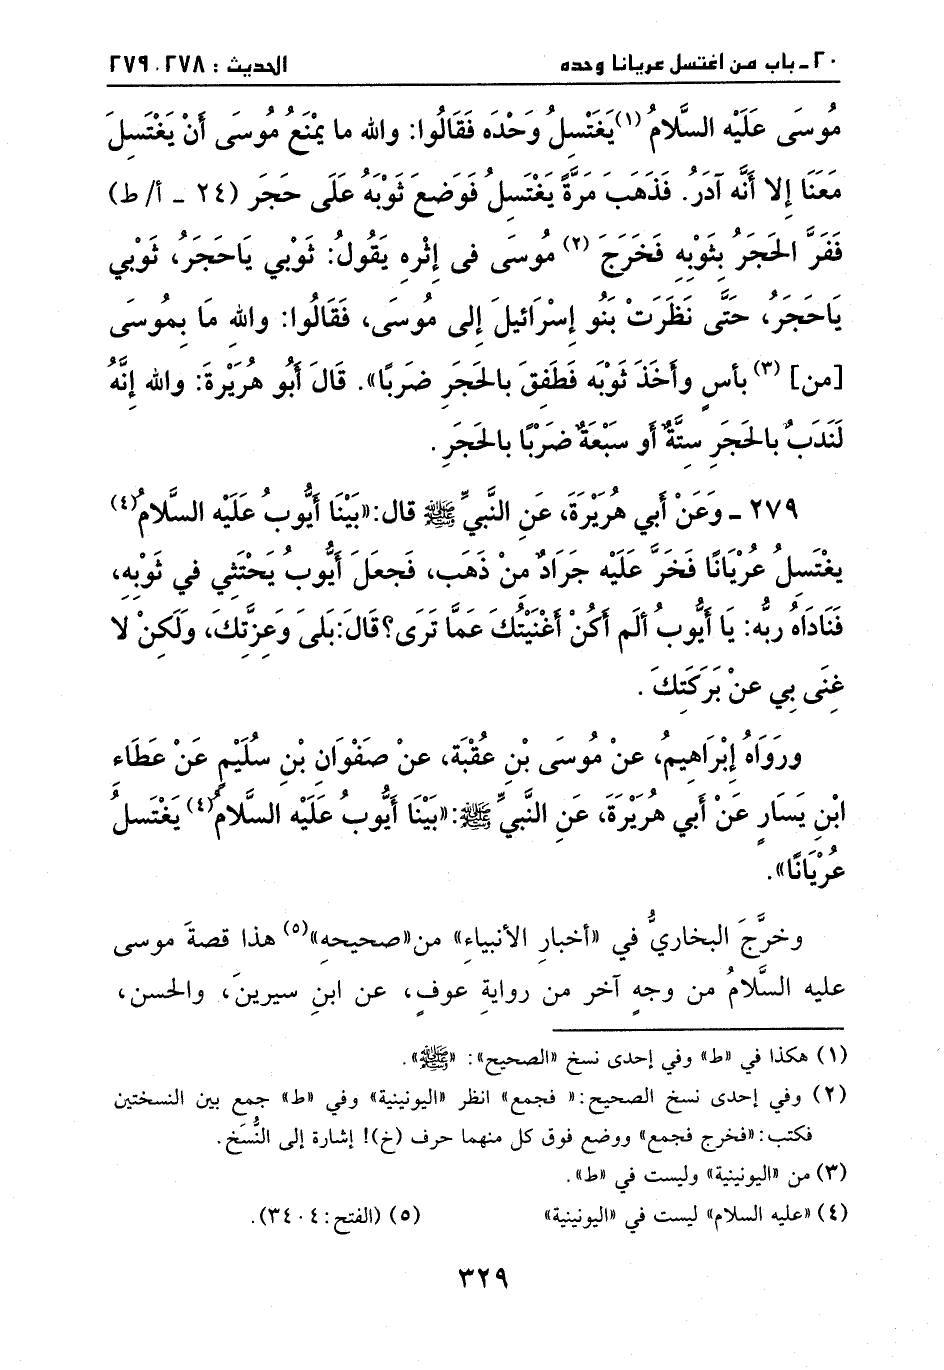 ٢٠ ـ باب من اغتسل عريانا وحده الحديث : ٢٧٨، ٢٧٩
مُوسَى عَلَيْه السَّلَامُ (١) يَغْتَسِلُ وَحْدَه فَقَالُوا: والله ما يمْنَعُ مُوسَى أَنْ يَغْتَسِلَ
مَعَنَا إِلا أَنَّه آدَرُ. فَذَهَبَ مَرَّةً يَغْتَسِلُ فَوَضعَ ثَوْبَهُ عَلَى حَجَر (٢٤ ـ أ/ ط)
فَفَرَّ الحَجَرُ بِثَوْبِه فَخَرَجَ (٢) مُوسَى فى إِثْرِه يَقُولُ: ثَوْبي يَاحَجَرُ، ثَوْبي
يَاحَجَرُ، حَتَّى نَظَرَتْ بَنُو إِسْرَائيلَ إِلى مُوسَى، فَقَالُوا: واللهِ مَا بِموسَى
[من] (٣) بأسٍ وأَخَذَ ثَوْبَه فَطَفِقَ بالحَجَرِ ضَربًا». قَالَ أَبُو هُرَيْرةَ: والله إِنَّهُ
لَنَدَبٌ بالحَجَرِ ستَّةٌ أَو سَبْعَةٌ ضَرْبًا بالحَجَرِ .
٢٧٩ ـ وَعَنْ أَبي هُرَيْرَةَ، عَنِ النَّبيِّ ﷺ قال: «بَيْنَا أَيُّوبُ عَلَيْه السَّلامُ (٤)
يغْتَسِلُ عُرْيَانًا فَخَرَّ عَلَيْه جَرَادٌ منْ ذَهَب، فَجعَلَ أَيُّوبُ يَحْتَثِي في ثَوْبِه،
فَنَادَاهُ ربُّه: يَا أَيُّوبُ ألَم أَكُنْ أَغْنَيْتُكَ عَمَّا تَرَى؟ قَالَ: بلَى وَعِزَّتِكَ، ولَكِنْ لا
غِنَى بِي عنْ بَرَكَتِكَ .
ورَوَاهُ إبْرَاهِيمُ، عنْ مُوسَى بْنِ عُقْبَة، عنْ صَفْوَانِ بْنِ سُلَيْمٍ عَنْ عَطَاءِ
ابْنِ يَسَارٍ عَنْ أَبي هُرَيْرَةَ، عَنِ النَّبيِّ ﷺ: «بَيْنَا أَيُّوبُ عَلَيْه السَّلَامُ (٤) يَغْتَسلُ
عُرْيَانًا».
وخرَّجَ البخاريُّ في «أخبار الأنبياءِ» من «صحيحهِ» (٥) هذا قصةَ موسى
عليه السَّلامُ من وجهٍ آخر من روايةِ عوفٍ، عن ابنِ سيرينَ، والحسن،
(١) هكذا في «ط» وفي إحدى نسخ «الصحيح»: «ﷺ».
(٢) وفي إحدى نسخ الصحيح: « فجمع» انظر «اليونينية» وفي «ط» جمع بين النسختين
فكتب: «فخرج فجمع» ووضع فوق كل منهما حرف (خ)! إشارة إلى النُّسَخ.
(٣) من «اليونينية» وليست في «ط».
(٤) «عليه السلام» ليست في «اليونينية» (٥) (الفتح: ٣٤٠٤).
٣٢٩